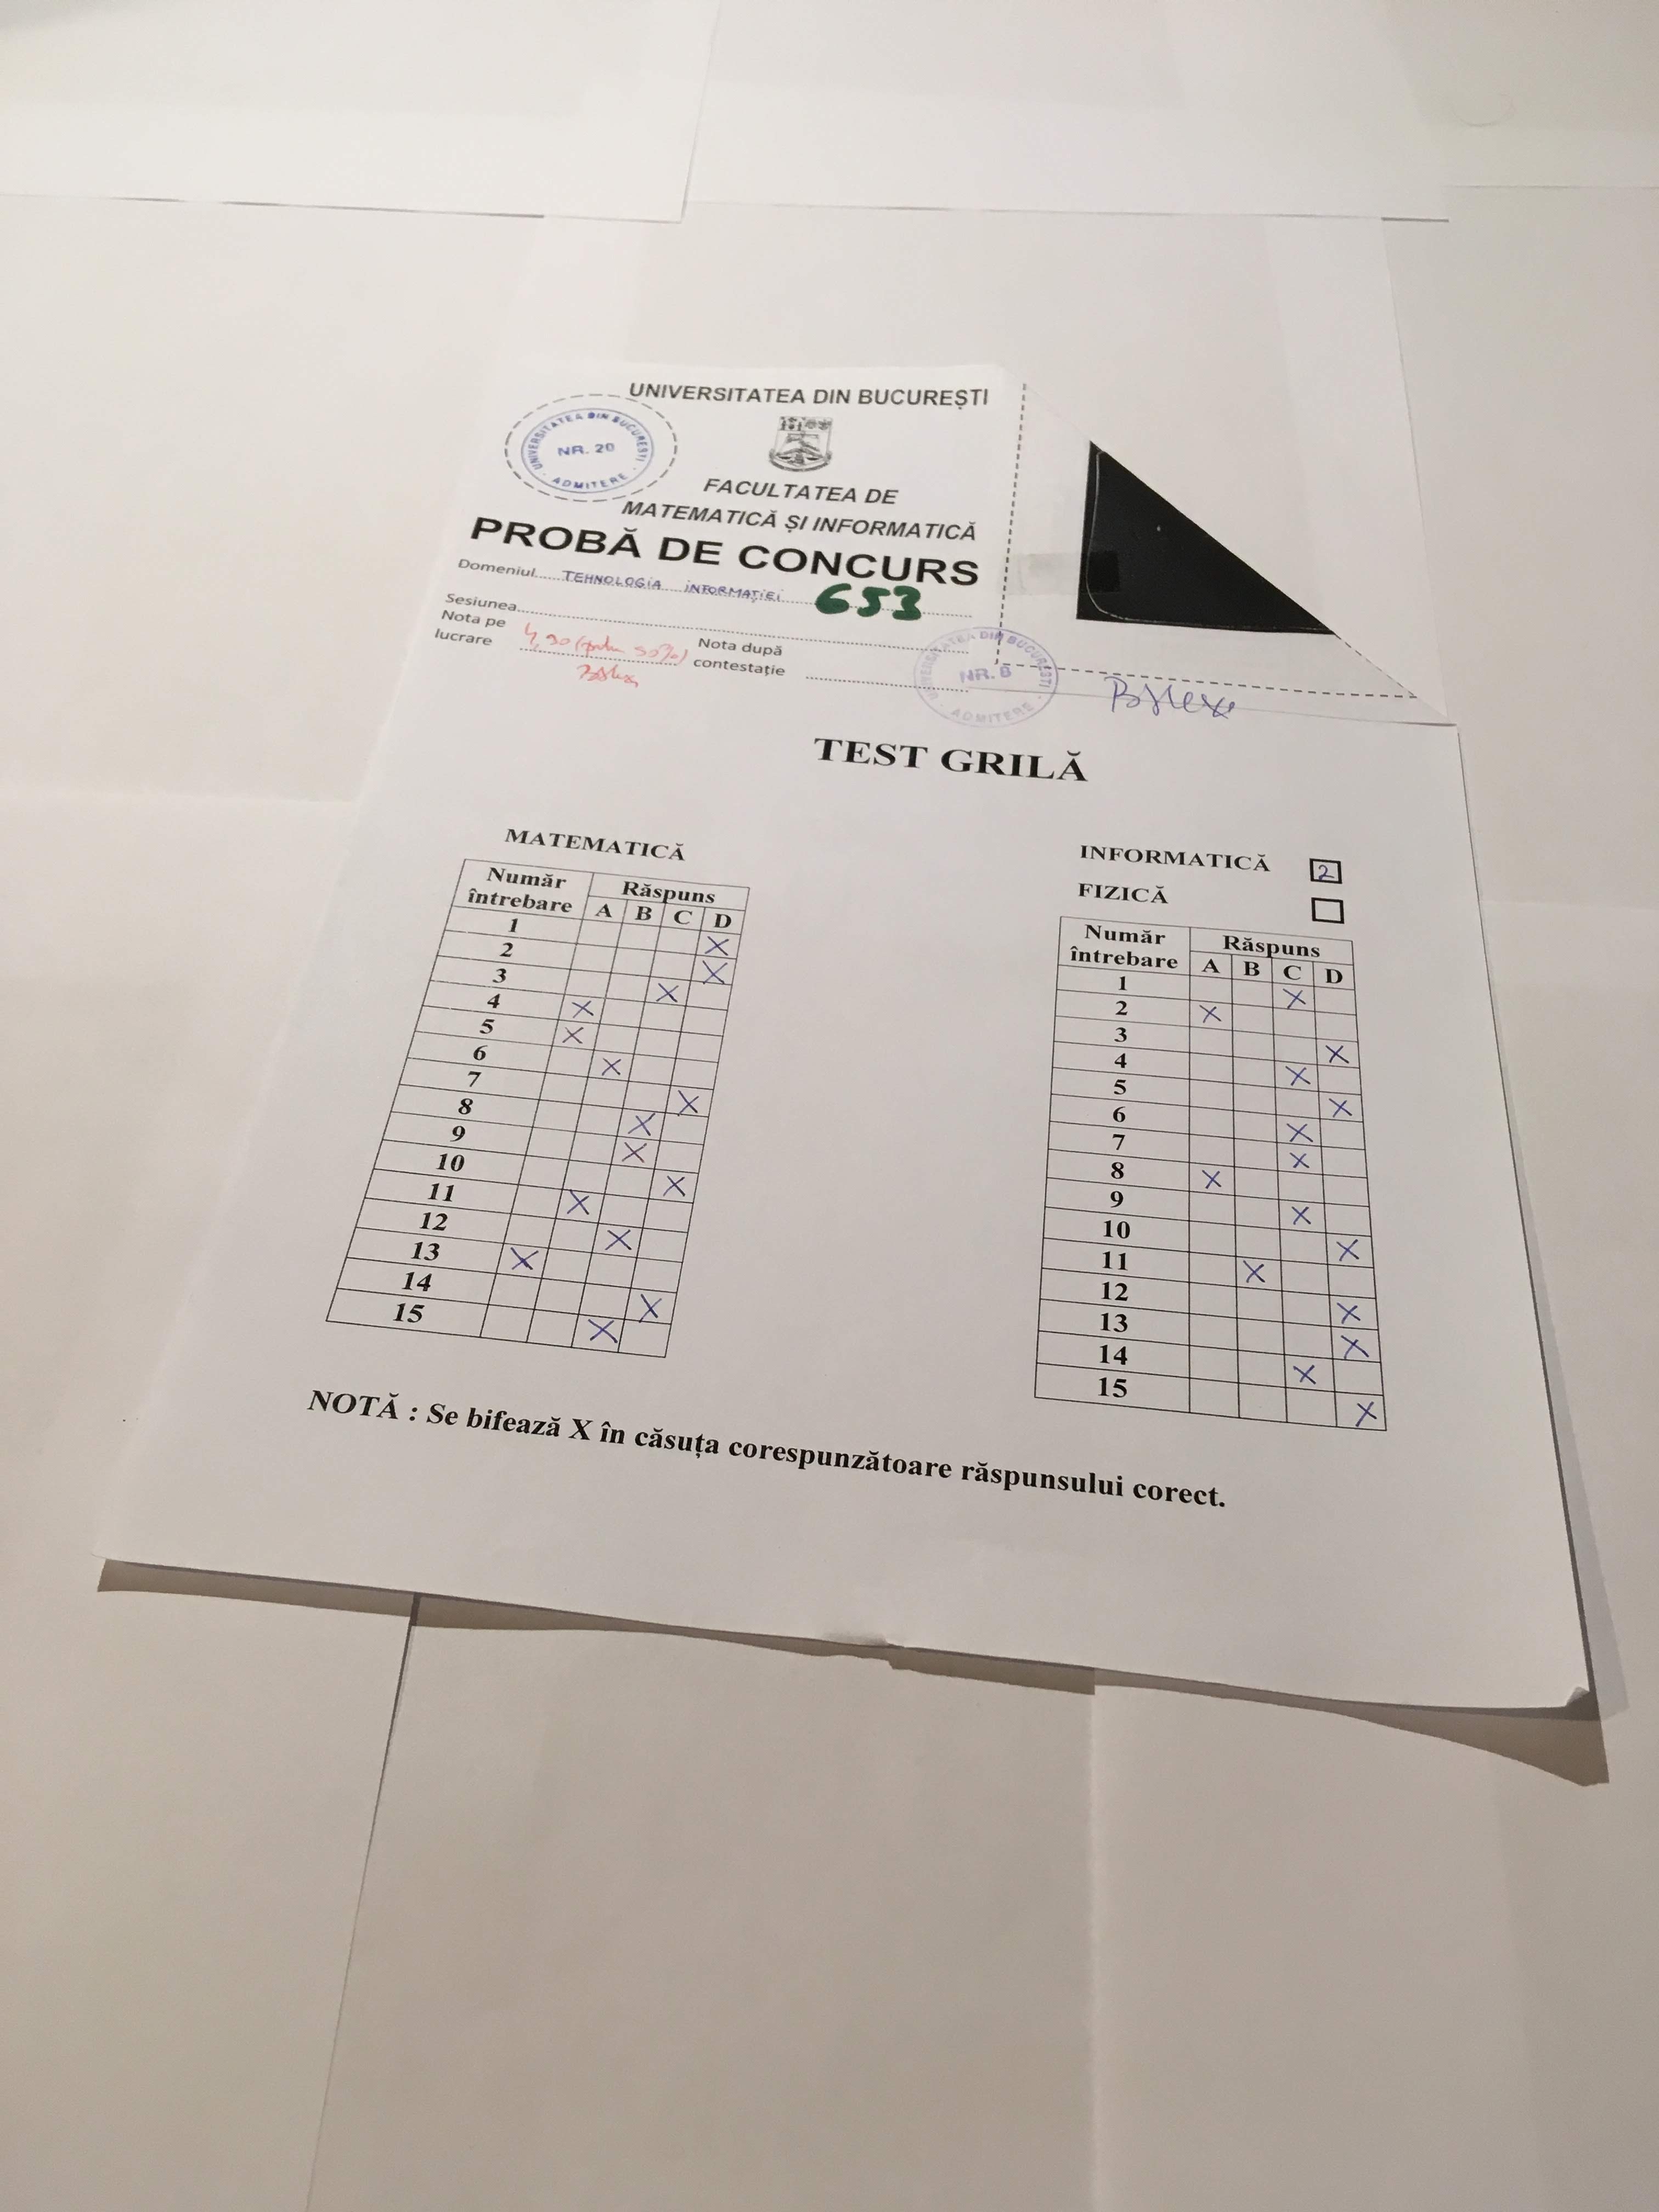 UNIVERSITATEA DIN BUCUREȘTI
UNIVERSITATEA DIN BUCUREȘTI
NR. 20
ADMITERE
FACULTATEA DE
MATEMATICĂ ȘI INFORMATICĂ
PROBĂ DE CONCURS
Domeniul TEHNOLOGIA INFORMAȚIEI 653
Sesiunea
Nota pe lucrare 4,90
Nota după contestație
UNIVERSITATEA DIN BUCUREȘTI
NR. 8
ADMITERE
TEST GRILĂ
MATEMATICĂ
Număr întrebare Răspuns
A B C D
1 X
2 X
3 X
4 X
5 X
6 X
7 X
8 X
9 X
10 X
11 X
12 X
13 X
14 X
15 X
INFORMATICĂ 2
FIZICĂ
Număr întrebare Răspuns
A B C D
1 X
2 X
3 X
4 X
5 X
6 X
7 X
8 X
9 X
10 X
11 X
12 X
13 X
14 X
15 X
NOTĂ : Se bifează X în căsuța corespunzătoare răspunsului corect.